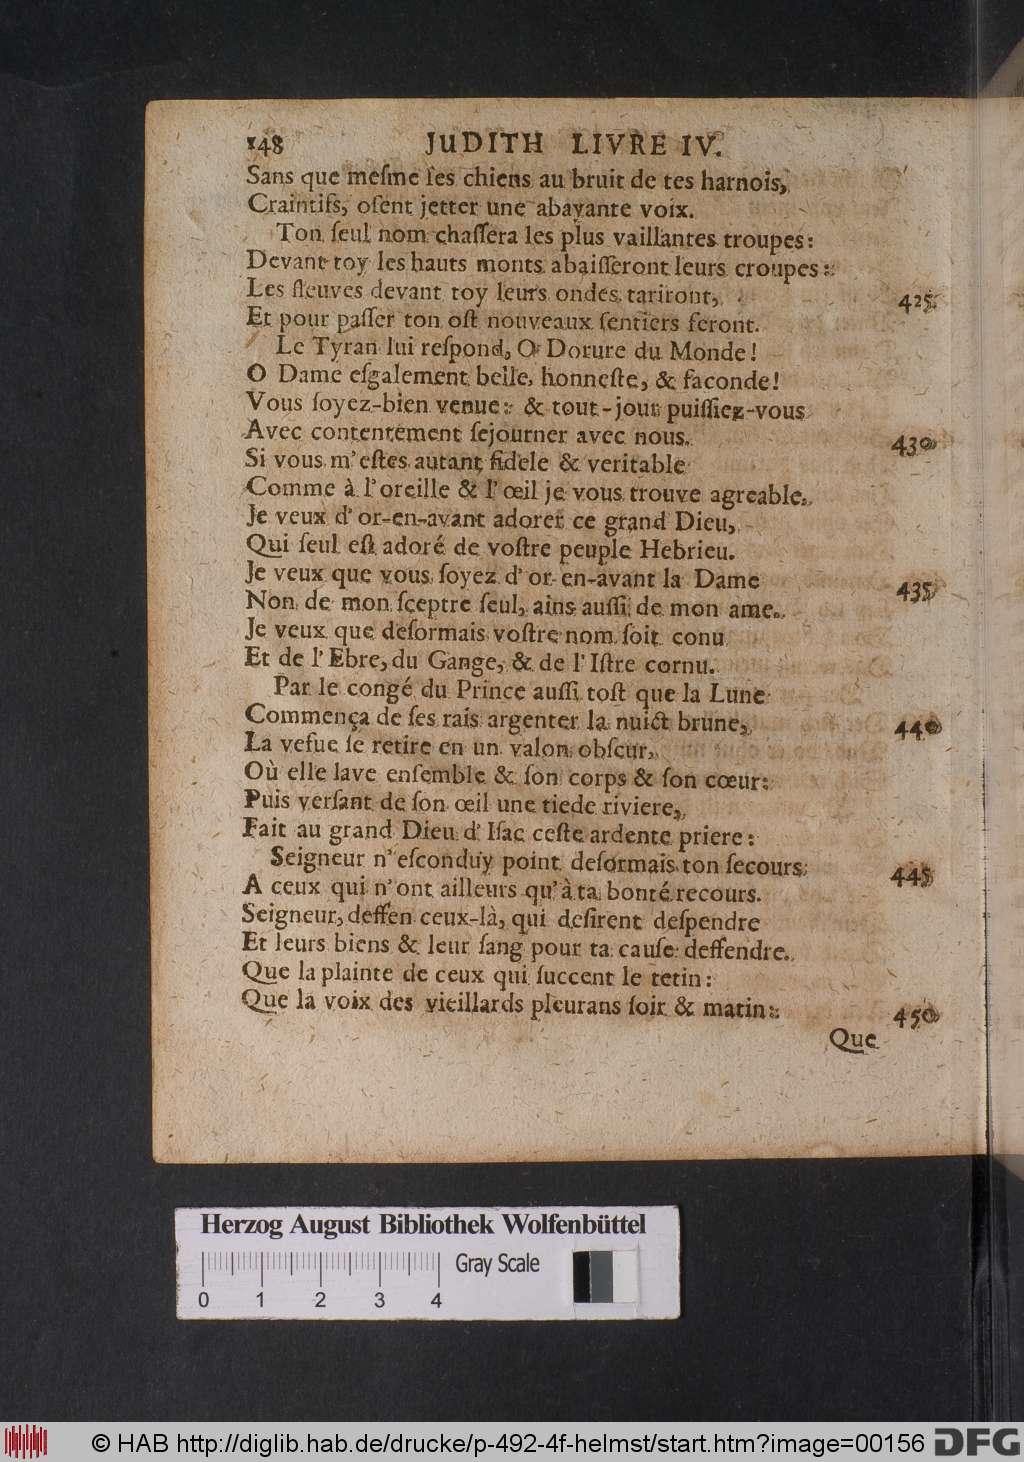 148 JuDITH LIVRE IV.
Sans que meſme ſes chiens au bruit de tes harnois,
Craintifs, oſent jetter une abayante voix.
Ton ſeul nom chaſſera les plus vaillantes troupes:
Devant toy les hauts monts abaiſſeront leurs croupes:
Les fleuves devant toy leurs ondes tariront, 425
Et pour paſſer ton oſt nouveaux ſentiers feront.
Le Tyran lui reſpond, O Dorure du Monde!
O Dame eſgalement belle, honneſte, & faconde!
Vous ſoyez-bien venue: & tout-jour puiſſiez-vous
Avec contentement ſejourner avec nous. 430
Si vous m'eſtes autant fidele & veritable
Comme à l'oreille & l'œil je vous trouve agreable,
Je veux d'or-en-avant adorer ce grand Dieu,
Qui ſeul eſt adoré de voſtre peuple Hebrieu.
Je veux que vous ſoyez d'or-en-avant la Dame 435
Non de mon ſceptre ſeul, ains auſſi de mon ame.
Je veux que deſormais voſtre nom ſoit conu
Et de l'Ebre, du Gange, & de l'Iſtre cornu.
Par le congé du Prince auſſi toſt que la Lune
Commença de ſes rais argenter la nuict brune, 440
La vefue ſe retire en un valon obſcur,
Où elle lave enſemble & ſon corps & ſon cœur:
Puis verſant de ſon œil une tiede riviere,
Fait au grand Dieu d'Iſac ceſte ardente priere:
Seigneur n'eſconduy point deſormais ton ſecours 445
A ceux qui n'ont ailleurs qu'à ta bonté recours.
Seigneur, deffen ceux-là, qui deſirent deſpendre
Et leurs biens & leur ſang pour ta cauſe deffendre.
Que la plainte de ceux qui ſuccent le tetin:
Que la voix des vieillards pleurans ſoir & matin: 450
Que
Herzog August Bibliothek Wolfenbüttel
Gray Scale
0 1 2 3 4
© HAB http://diglib.hab.de/drucke/p-492-4f-helmst/start.htm?image=00156 DFG